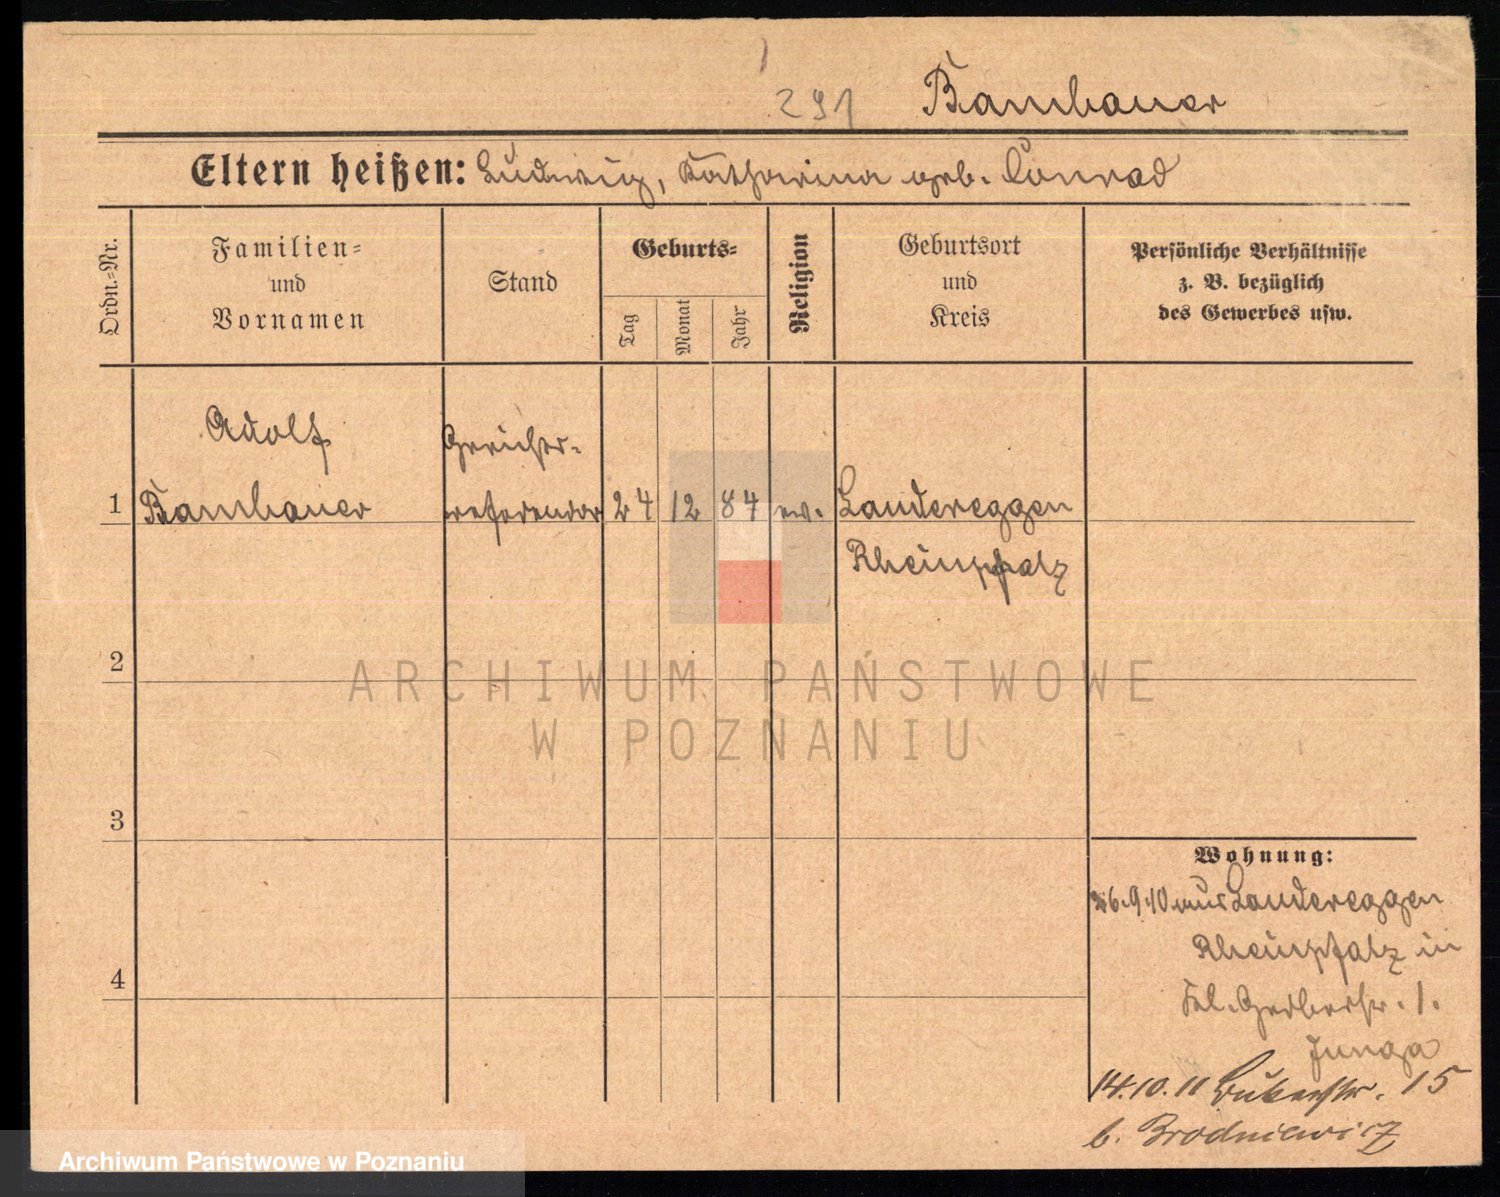 291 Bambauer
Eltern heißen: Ludwig, Katharina geb. Conrad
Ordn.-Nr.
Familien-
und
Vornamen
Stand
Geburts-
Tag
Monat
Jahr
Religion
Geburtsort
und
Kreis
Persönliche Verhältnisse
z. B. bezüglich
des Gewerbes usw.
Adolf
Gerichts-
1 Bambauer referendar 24 12 84 ev. Landereggen
Rheinpfalz
2
ARCHIWUM PAŃSTWOWE
W POZNANIU
3
Wohnung:
26.9.10 aus Landereggen
Rheinpfalz in
Kl. Gerberstr. 1.
Junga
14.10.11 Bukerstr. 15
b. Brodniewicz
4
Archiwum Państwowe w Poznaniu